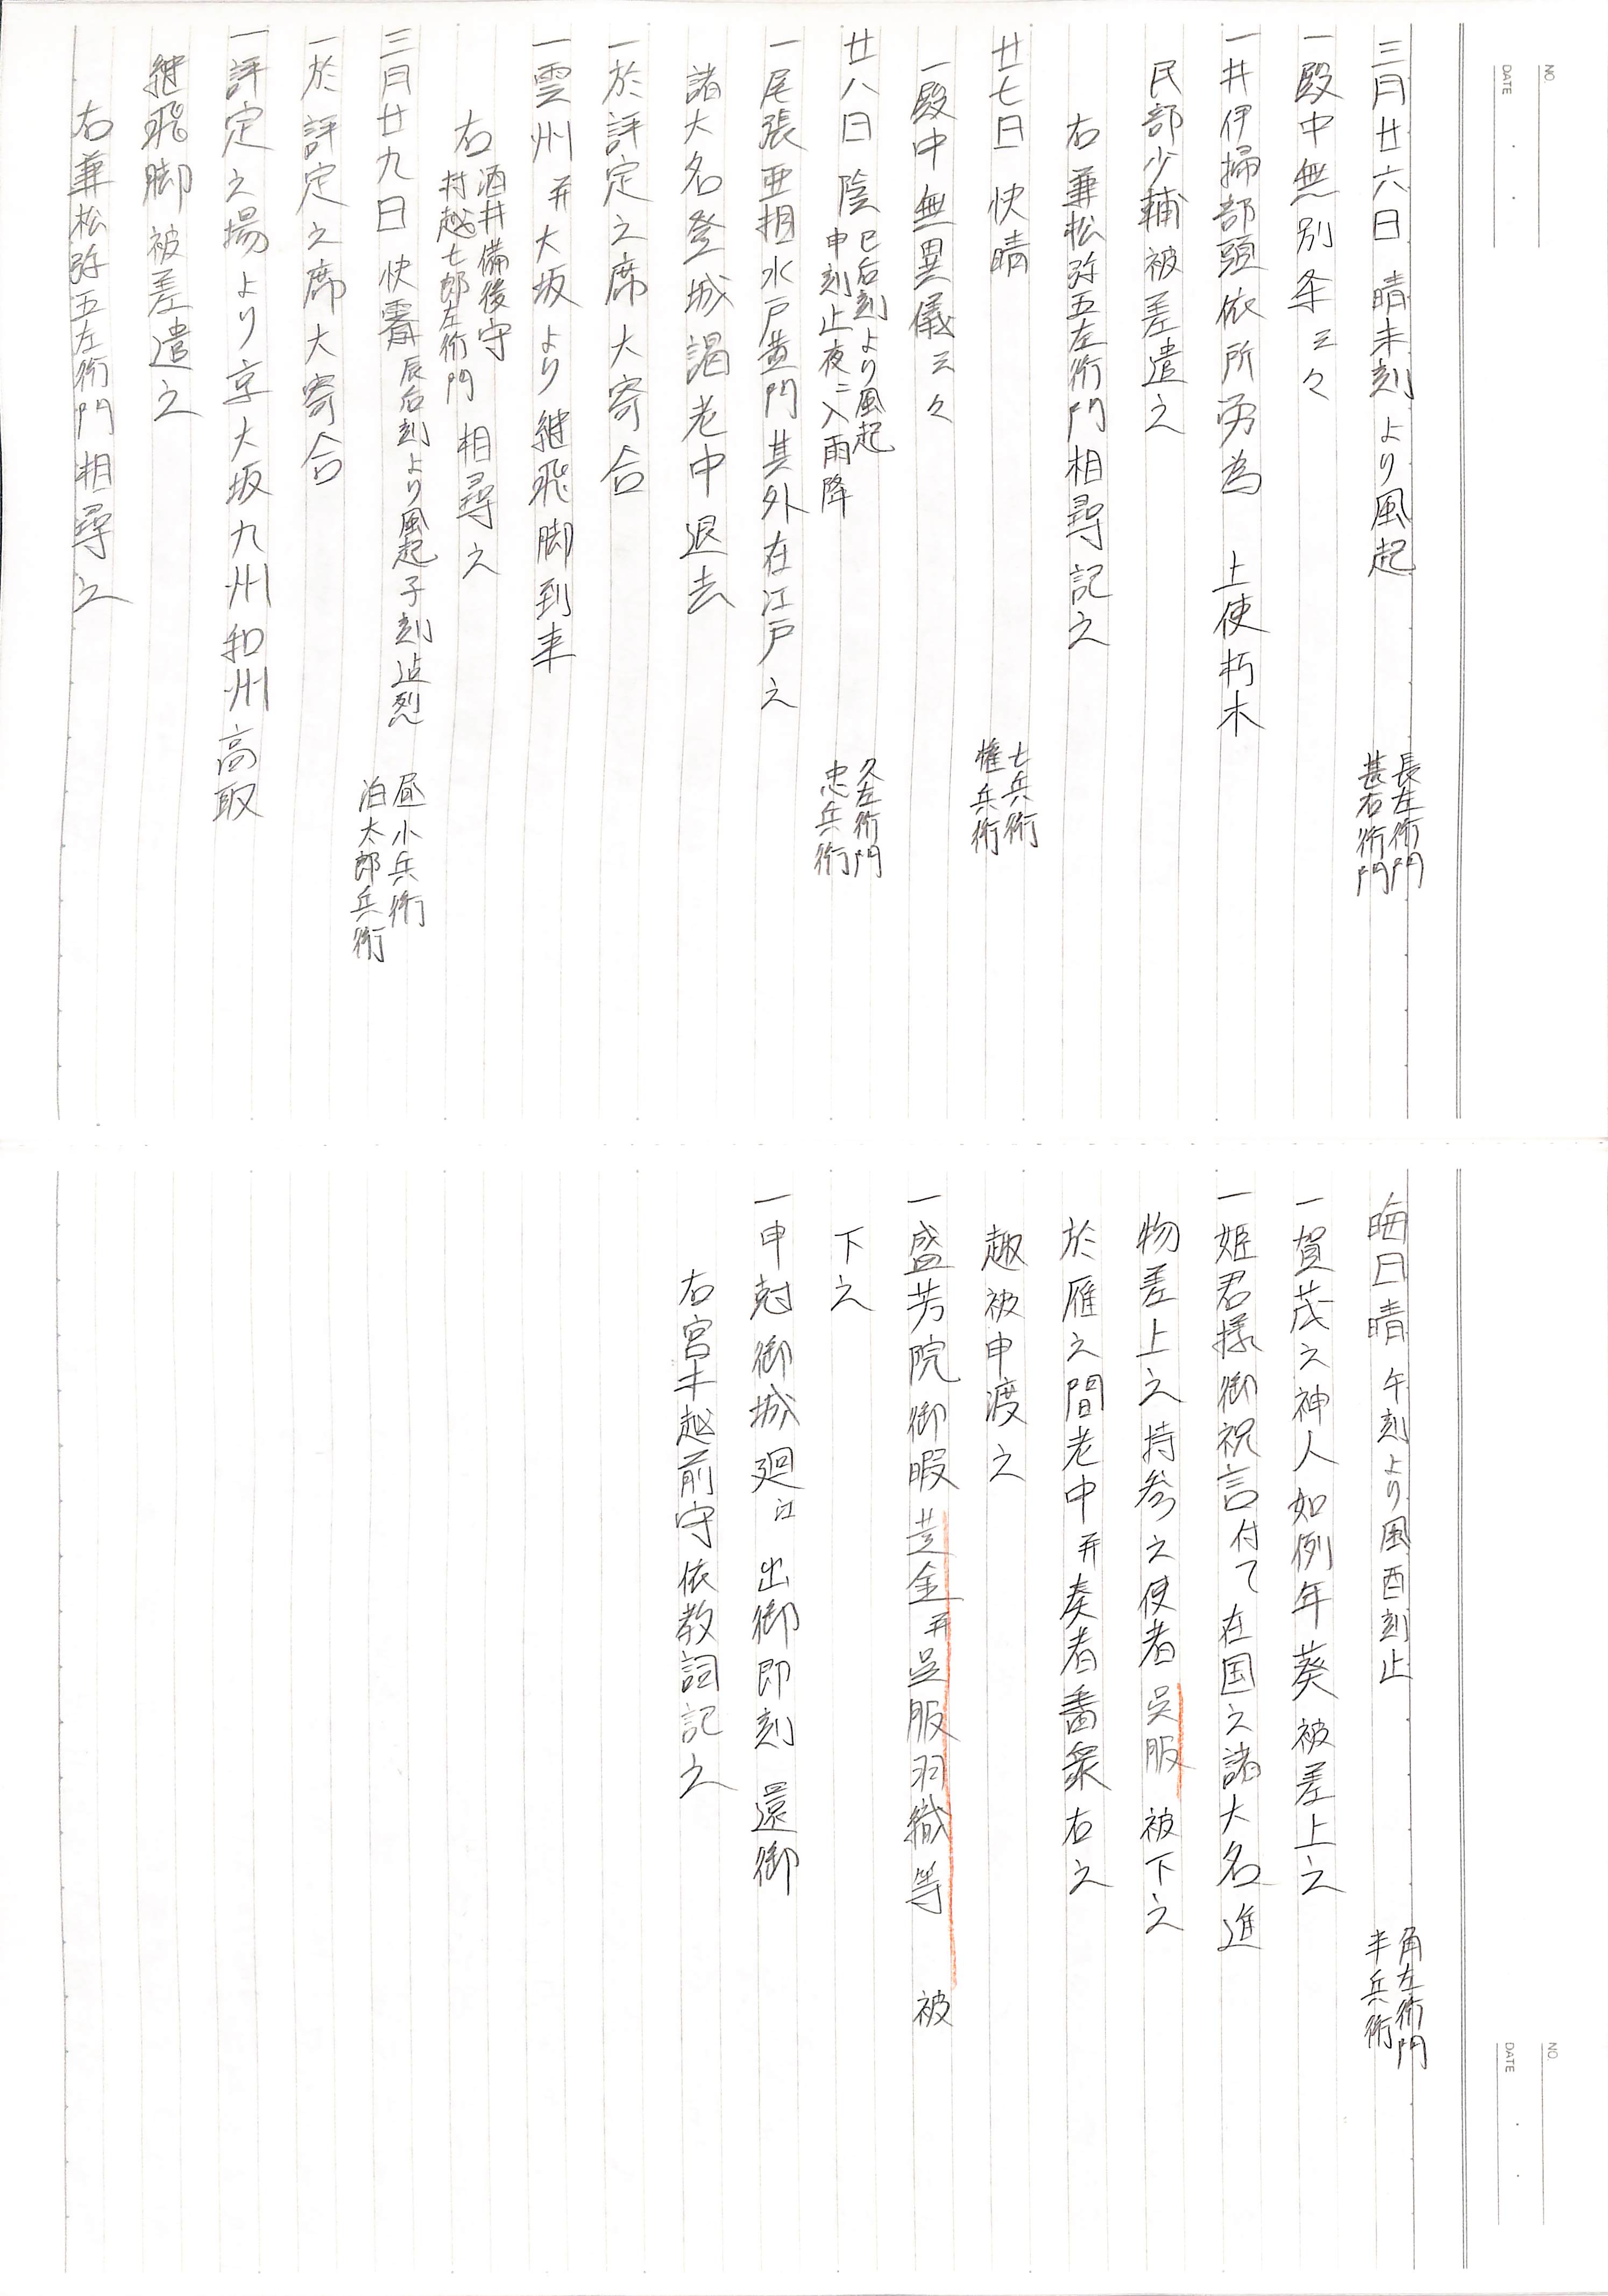 NO.
DATE
三月廿六日 晴未刻より風起
長左衛門
甚右衛門
一殿中無別条云々
一井伊掃部頭依所労為 上使朽木
民部少輔被差遣之
右兼松弥五左衛門相尋記之
廿七日 快晴
七兵衛
権兵衛
一殿中無異儀云々
廿八日 陰 巳后刻より風起
申刻止夜ニ入雨降
久左衛門
忠兵衛
一尾張亜相水戸黄門其外在江戸之
諸大名登城謁老中退去
一於評定之席大寄合
一雲州并大坂より継飛脚到来
右 酒井備後守
村越七郎左衛門 相尋之
三月廿九日 快霽 辰后刻より風起子刻迄烈
昼小兵衛
泊太郎兵衛
一於評定之席大寄合
一評定之場より京大坂九州和州高取
継飛脚被差遣之
右兼松弥五左衛門相尋之
NO.
DATE
晦日晴 午刻より風酉刻止
角左衛門
半兵衛
一賀茂之神人如例年葵被差上之
一姫君様御祝言付て在国之諸大名進
物差上之持参之使者呉服被下之
於雁之間老中并奏者番衆右之
趣被申渡之
一盛芳院御暇黄金并呉服羽織等 被
下之
一申尅御城廻江 出御即刻 還御
右宮半越前守依教詞記之